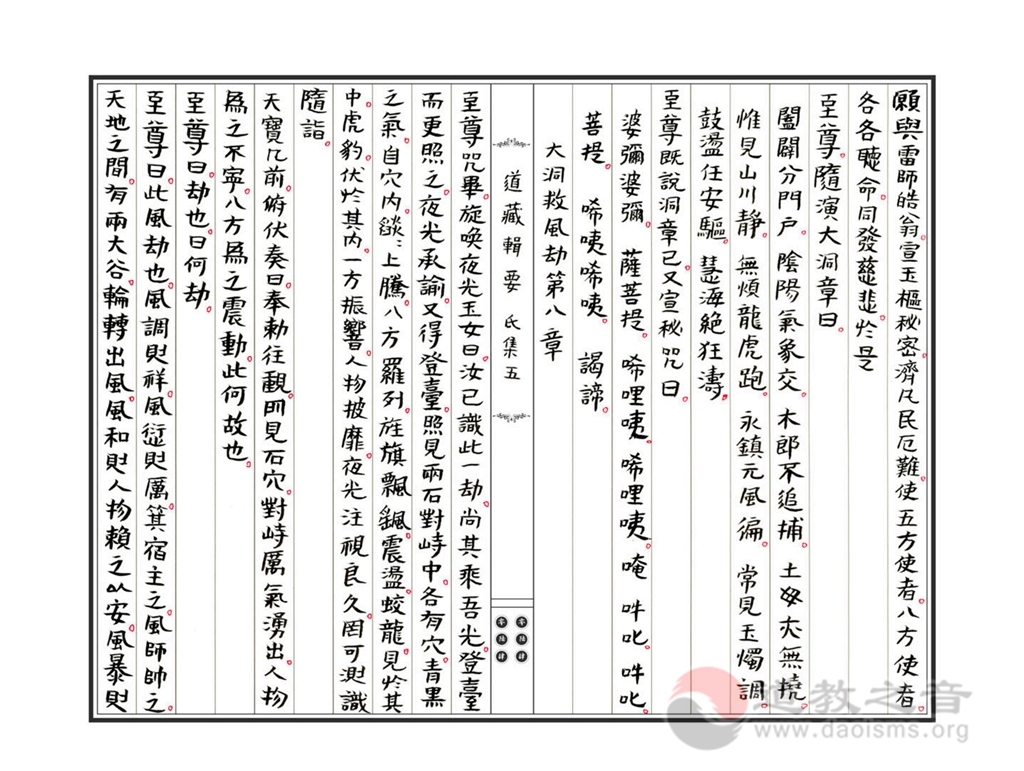 願與雷師皓翁宣玉樞秘密濟凡民厄難使五方使者八方使者
各各聽命同發慈悲於是
至尊隨演大洞章曰
闔闢分門戶 陰陽氣象交 木郎不追捕 土母夾無撓
惟見山川靜 無煩龍虎跑 永鎮元風徧 常見玉燭調
鼓盪任安驅 慧海絕狂濤
至尊既說洞章已又宣秘咒曰
婆彌婆彌 薩菩提 唏哩咦 唏哩咦 唵 吽叱 吽叱
菩提 唏咦唏咦 謁諦
大洞救風劫第八章
道藏輯要 氐集五
至尊咒畢旋喚夜光玉女曰汝已識此一劫尚其乘吾光登臺
而更照之夜光承諭又得登臺照見兩石對峙中各有穴青黑
之氣自穴內燄燄上騰八方羅列旌旗飄颻震盪蛟龍見於其
中虎豹伏於其內一方振響人物披靡夜光注視良久罔可測識
隨詣
天寶几前俯伏奏曰奉勅往觀門見石穴對峙厲氣湧出人物
為之不寧八方為之震動此何故也
至尊曰劫也曰何劫
至尊曰此風劫也風調則祥風愆則厲箕宿主之風師帥之
天地之間有兩大谷輪轉出風風和則人物賴之以安風暴則
道教之音
www.daoisms.org